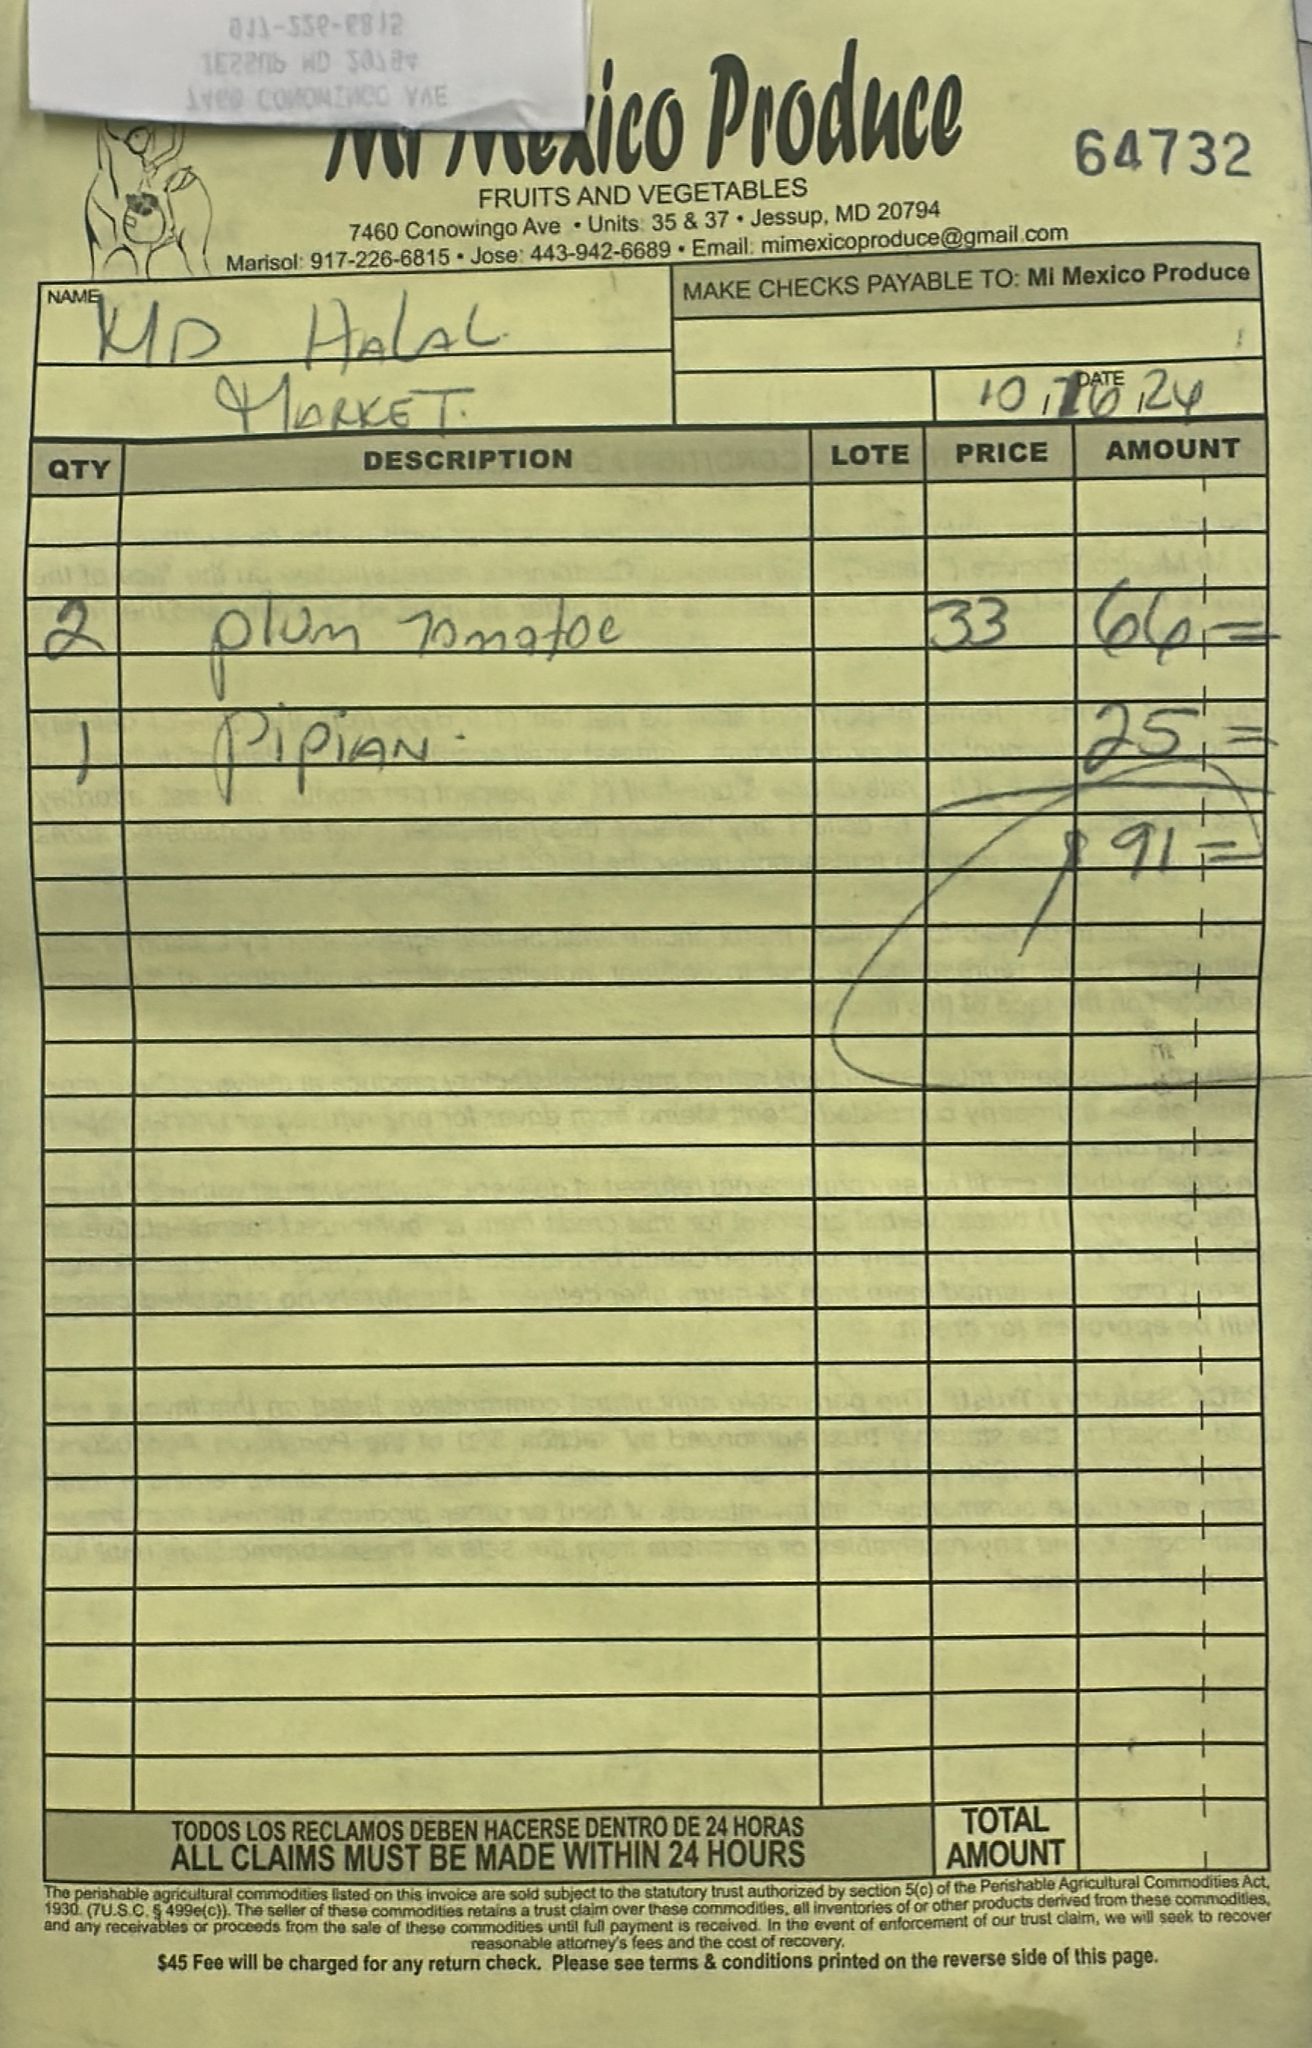 917-226-6815
JESSUP MD 20794
7460 CONOWINGO AVE
Mi Mexico Produce
64732
FRUITS AND VEGETABLES
7460 Conowingo Ave • Units: 35 & 37 • Jessup, MD 20794
Marisol: 917-226-6815 • Jose: 443-942-6689 • Email: mimexicoproduce@gmail.com
NAME MD HALAL
MARKET.
MAKE CHECKS PAYABLE TO: Mi Mexico Produce
DATE 10,16,24
QTY DESCRIPTION LOTE PRICE AMOUNT
2 plum Tomatoe 33 66 =
1 PIPIAN. 25 =
$91 =
TODOS LOS RECLAMOS DEBEN HACERSE DENTRO DE 24 HORAS
ALL CLAIMS MUST BE MADE WITHIN 24 HOURS
TOTAL
AMOUNT
The perishable agricultural commodities listed on this invoice are sold subject to the statutory trust authorized by section 5(c) of the Perishable Agricultural Commodities Act,
1930. (7U.S.C. § 499e(c)). The seller of these commodities retains a trust claim over these commodities, all inventories of or other products derived from these commodities,
and any receivables or proceeds from the sale of these commodities until full payment is received. In the event of enforcement of our trust claim, we will seek to recover
reasonable attorney's fees and the cost of recovery.
$45 Fee will be charged for any return check. Please see terms & conditions printed on the reverse side of this page.